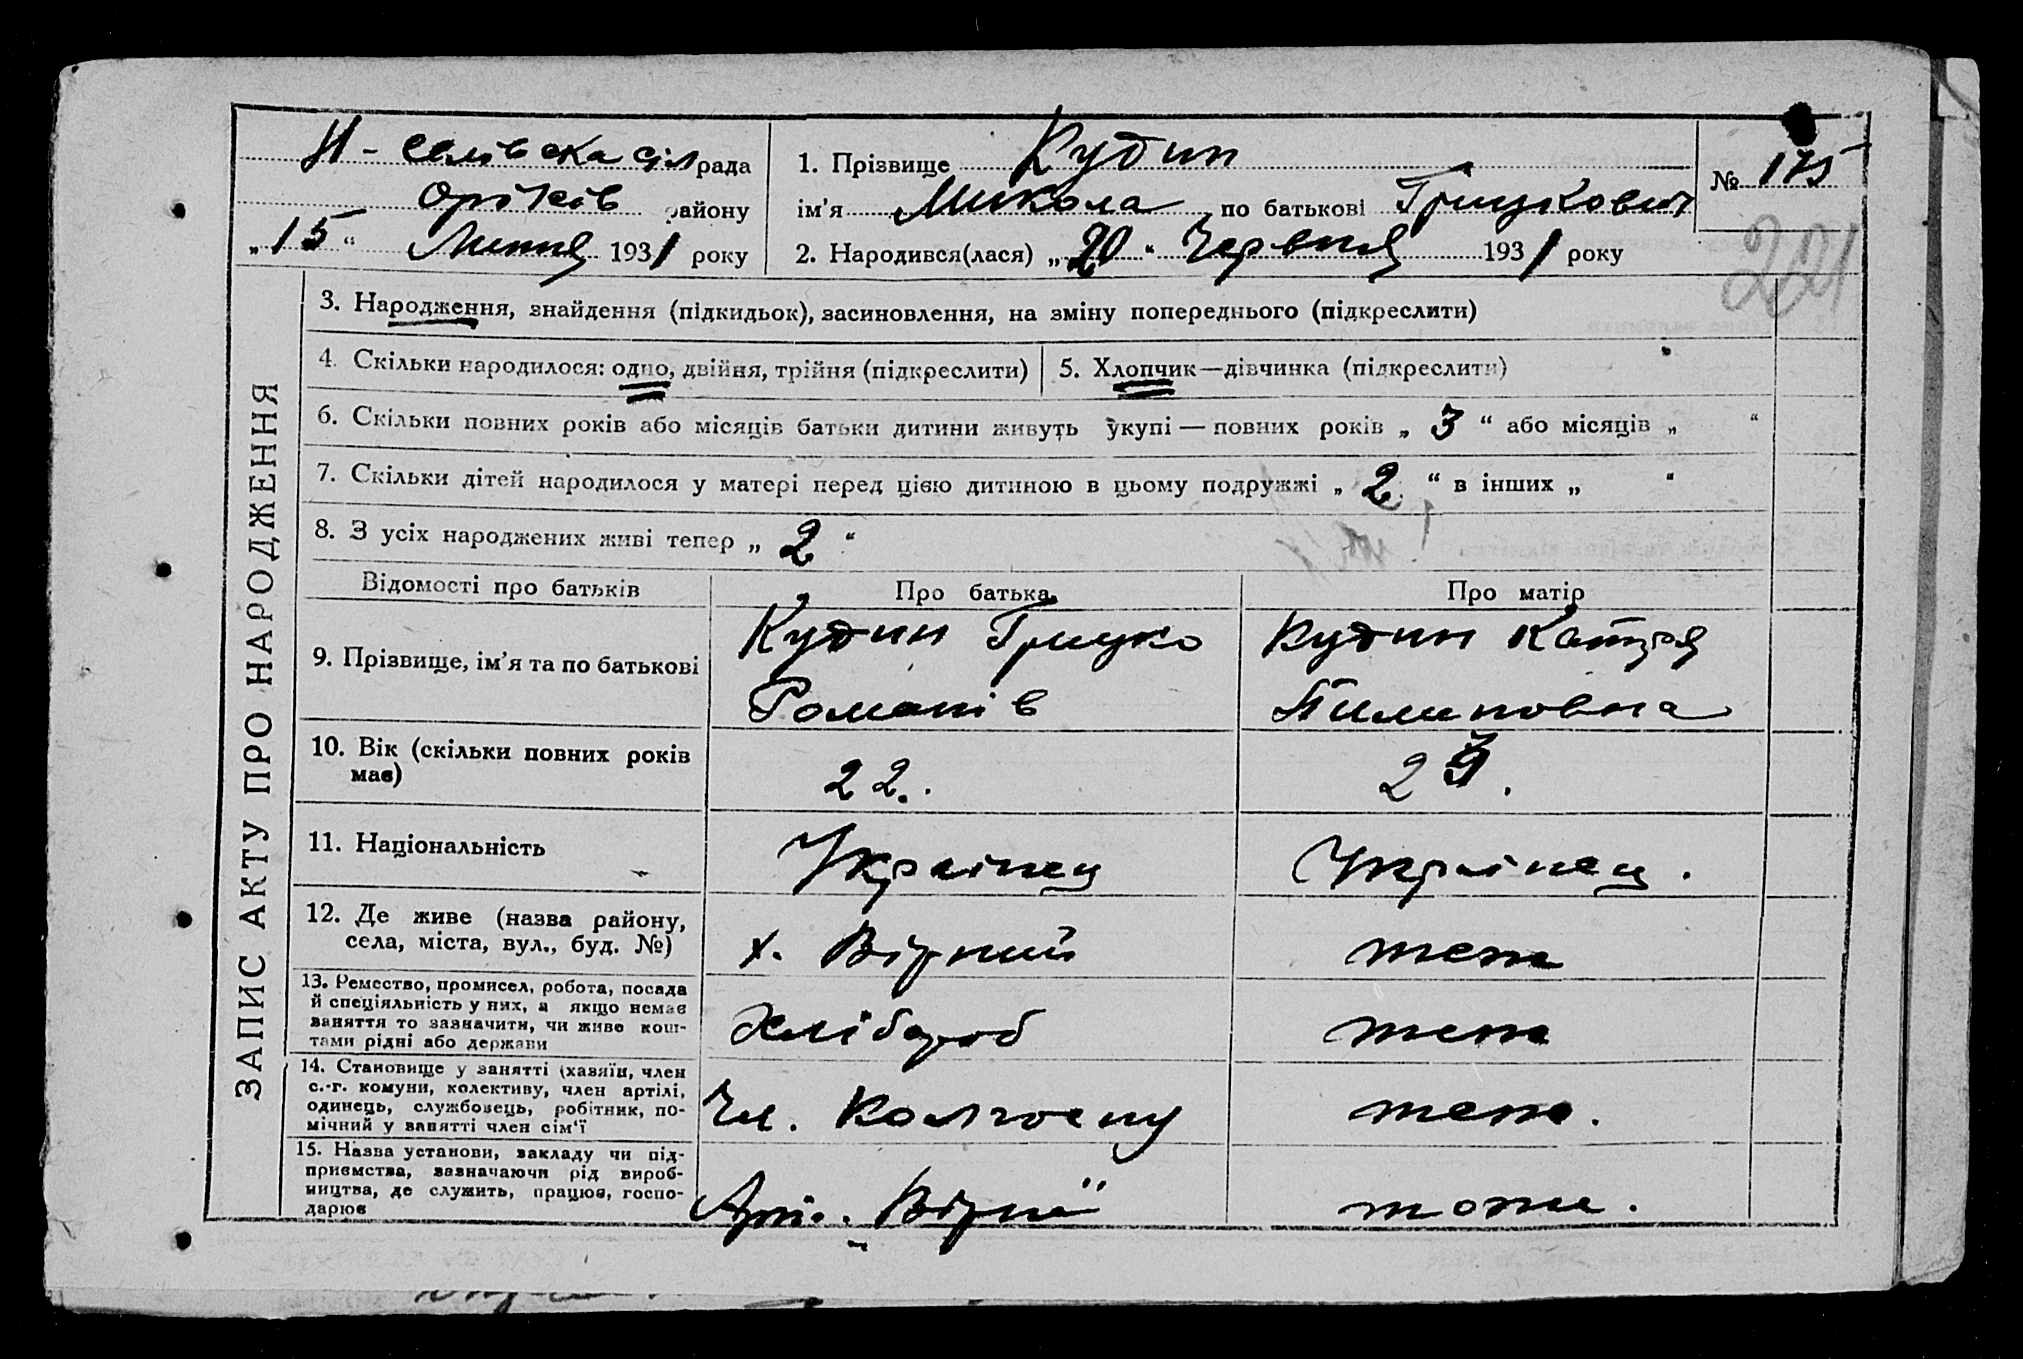 Н-селівська сілрада
Оріхів району
„15“ Липня 1931 року
1. Прізвище Кудин
ім’я Микола по батькові Грицкович
2. Народився(лася) „20“ Червня 1931 року
№ 175
221
ЗАПИС АКТУ ПРО НАРОДЖЕННЯ
3. Народження, знайдення (підкидьок), засиновлення, на зміну попереднього (підкреслити)
4. Скільки народилося: одно, двійня, трійня (підкреслити)
5. Хлопчик—дівчинка (підкреслити)
6. Скільки повних років або місяців батьки дитини живуть укупі — повних років „ 3 “ або місяців „ “
7. Скільки дітей народилося у матері перед цією дитиною в цьому подружжі „ 2 “ в інших „ “
8. З усіх народжених живі тепер „ 2 “
Відомості про батьків Про батька Про матір
9. Прізвище, ім’я та по батькові
Кудин Грицко
Романів
Кудин Катря
Пилиповна
10. Вік (скільки повних років
має)
22.
11. Національність
Українец
Українец.
12. Де живе (назва району,
села, міста, вул., буд. №)
х. Вірний
теж
13. Ремество, промисел, робота, посада
й спеціяльність у них, а якщо немає
заняття то зазначити, чи живе кош-
тами рідні або держави
Хлібороб
теж
14. Становище у занятті (хазяїн, член
с.-г. комуни, колективу, член артілі,
одинець, службовець, робітник, по-
мічний у занятті член сім’ї
Чл. Колгоспу
теж.
15. Назва установи, закладу чи під-
приємства, зазначаючи рід вироб-
ництва, де служить, працює, госпо-
дарює
Арт. „Вірний“
тоже.